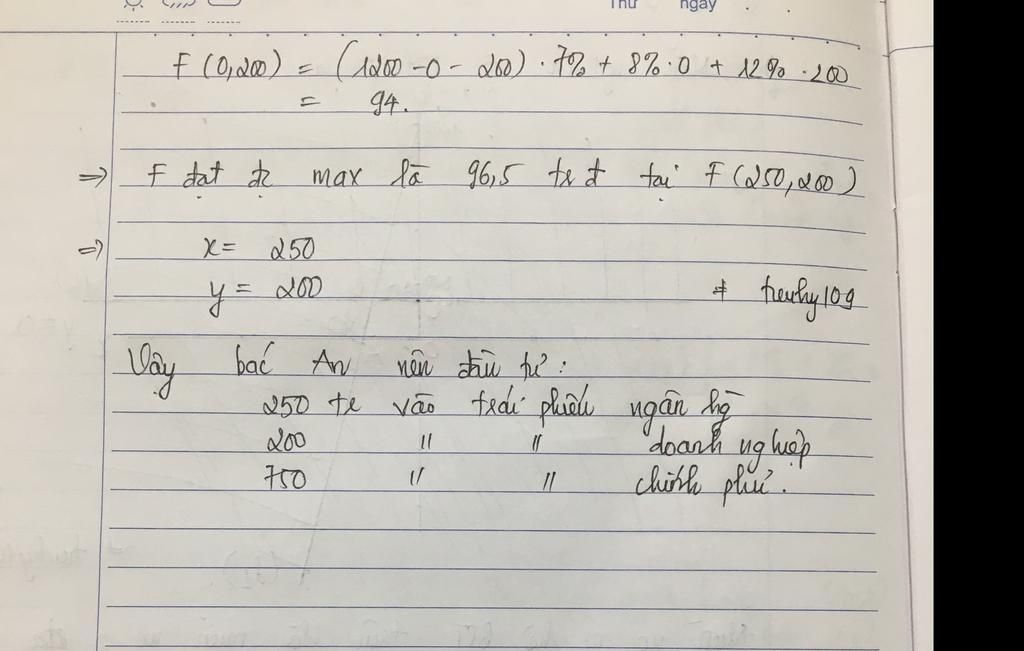 Thứ ngày
F (0,200) = (1200 - 0 - 200) . 7% + 8% . 0 + 12% . 200
= 94.
=> F đạt đc max là 96,5 tr đ tại F (250,200)
=> x = 250
y = 200
# trenhy109
Vậy bác An nên đầu tư :
250 tr vào trái phiếu ngân hg
200 " " doanh nghiệp
750 " " chính phủ.